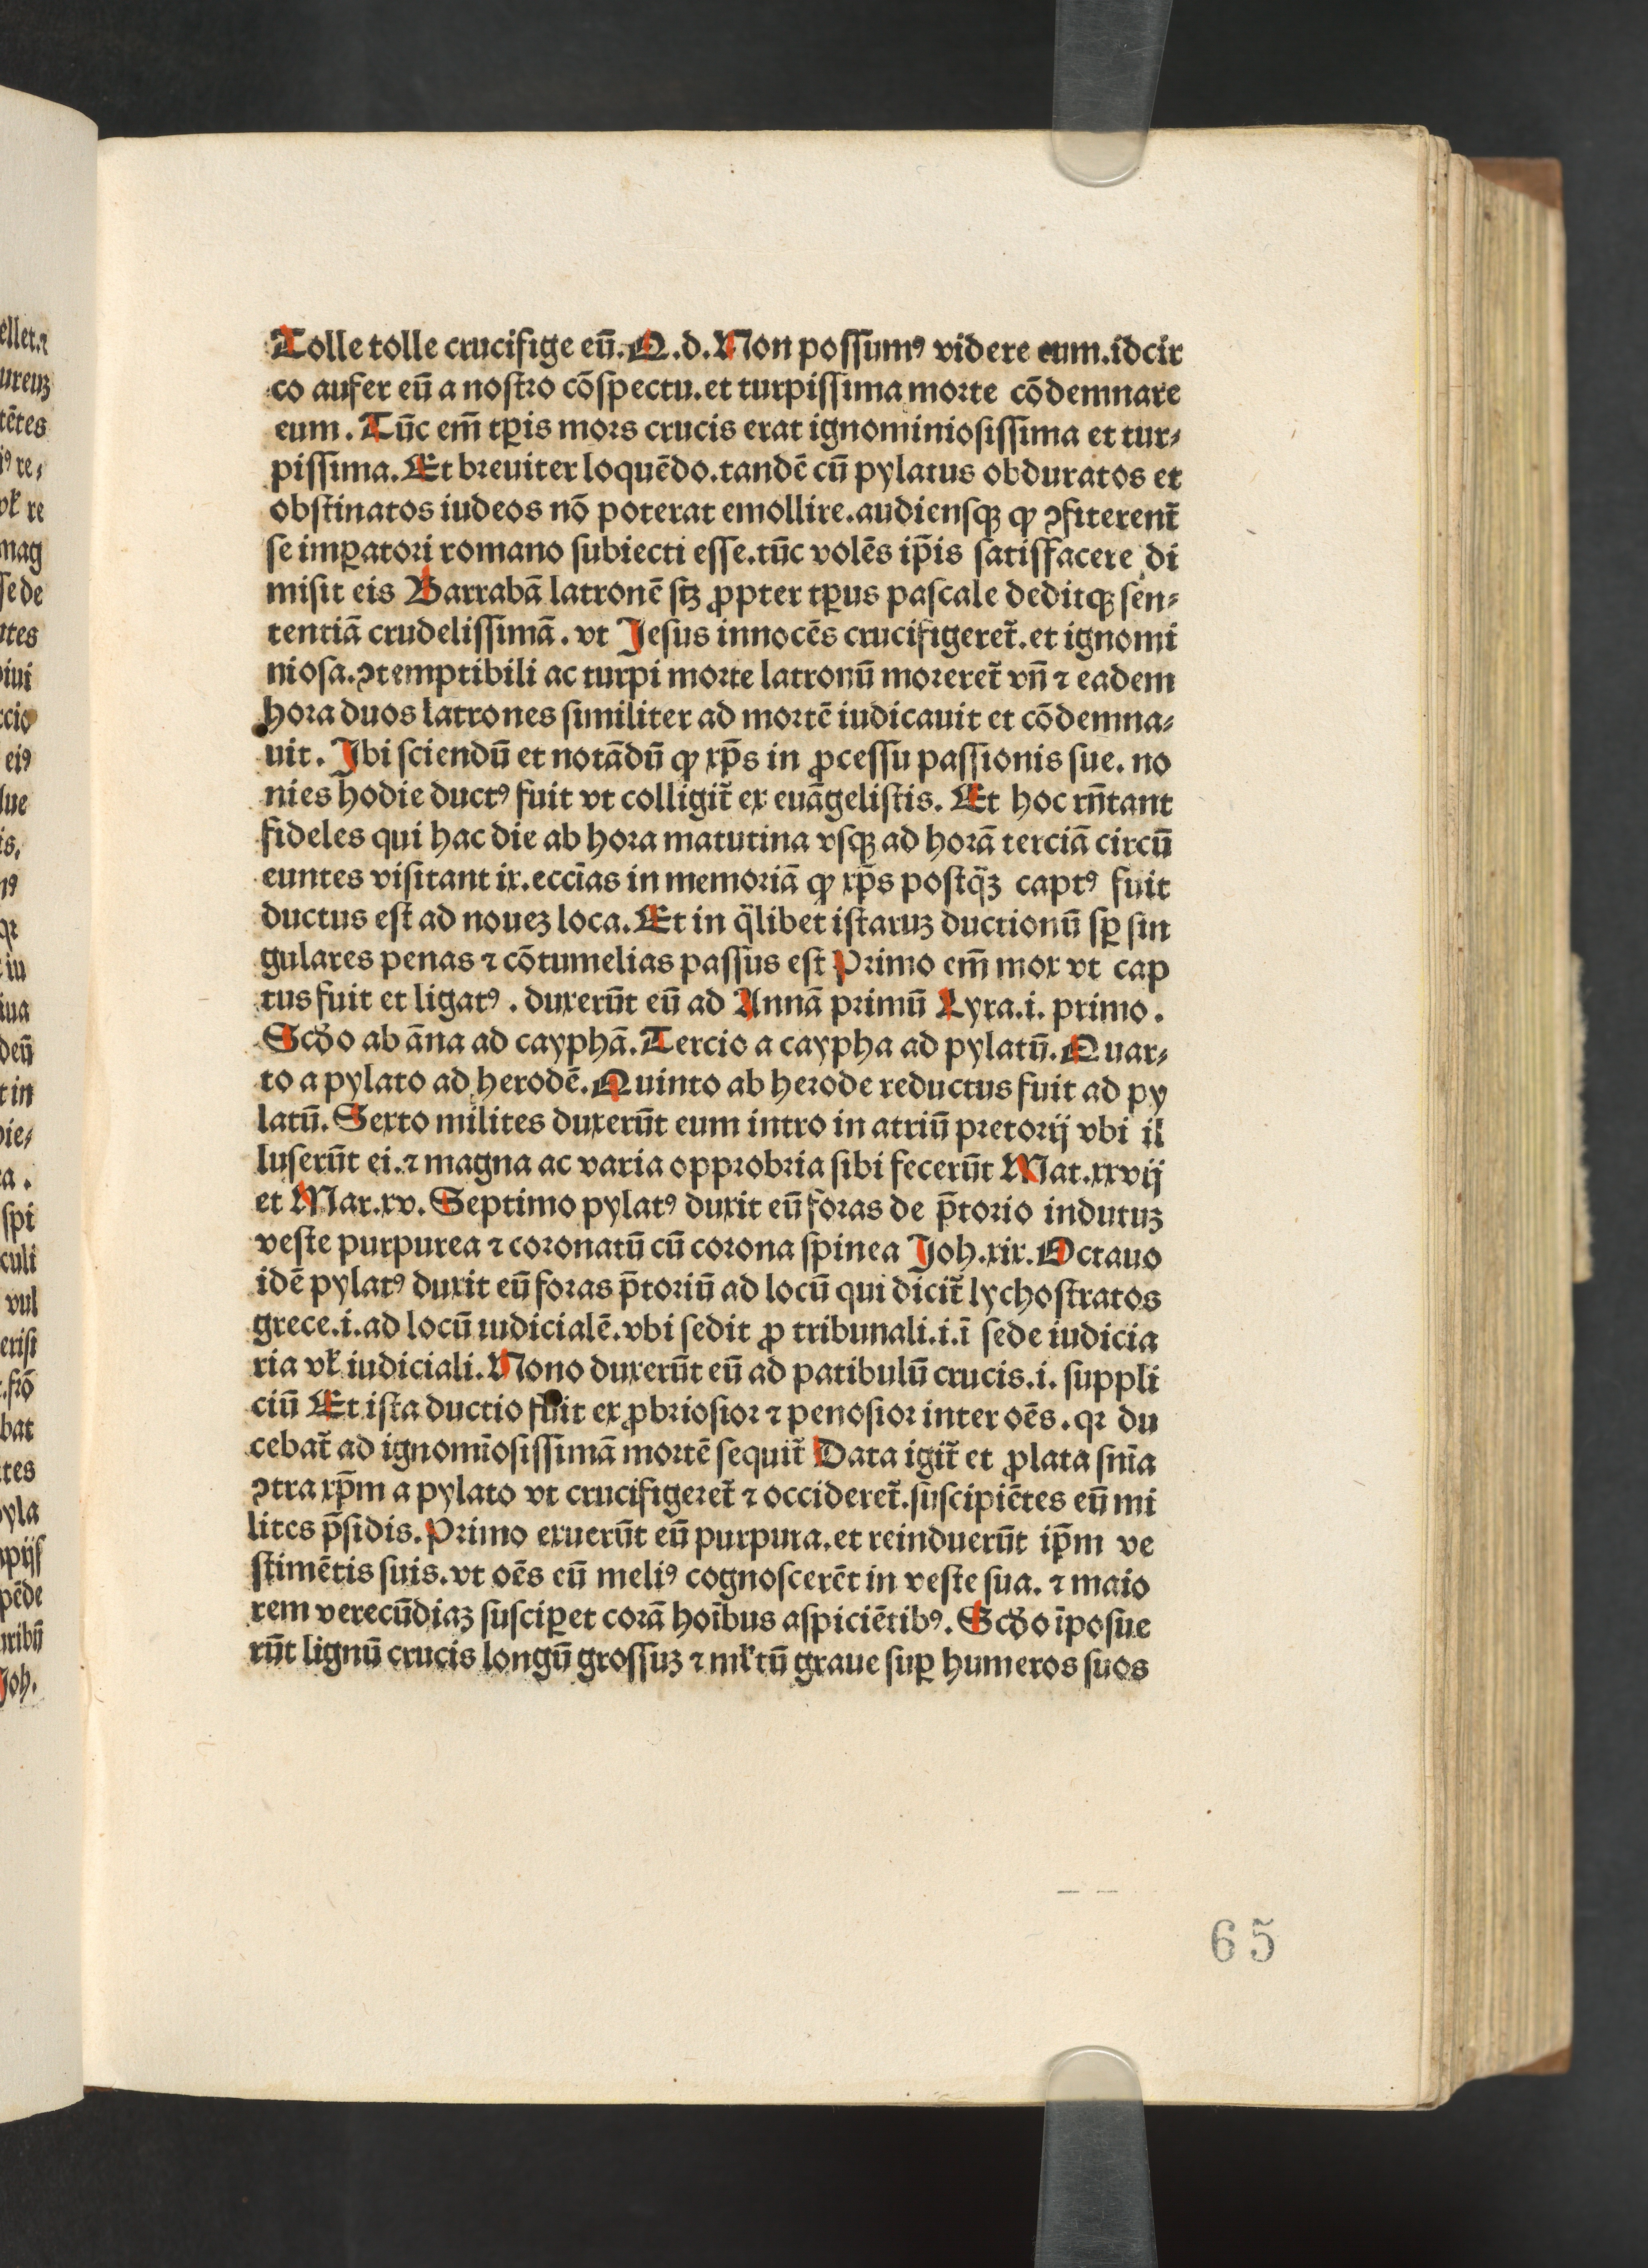 Tolle tolle crucifige eū. Q.d. Non possumꝰ videre eum. idcir
co aufer eū a nostro cōspectu. et turpissima morte cōdemnare
eum. Tūc em̄ tꝑis mors crucis erat ignominiosissima et tur⸗
pissima. Et breuiter loquēdo. tandē cū pylatus obduratos et
obstinatos iudeos nō poterat emollire. audiensqꝫ ꝙ ꝯfiterent̃
se imꝑatori romano subiecti esse. tūc volēs ip̄is satisfacere di
misit eis Barrabā latronē sꝫ ꝓpter tꝑus pascale deditqꝫ sen⸗
tentiā crudelissimā. vt Jesus innocēs crucifigeret̃. et ignomi
niosa. ꝯtemptibili ac turpi morte latronū moreret̃ vn̄ ⁊ eadem
hora duos latrones similiter ad mortē iudicauit et cōdemna⸗
uit. Jbi sciendū et notādū ꝙ xp̄s in ꝓcessu passionis sue. no
nies hodie ductꝰ fuit vt colligit̃ ex euāgelistis. Et hoc rn̄tant
fideles qui hac die ab hora matutina vsqꝫ ad horā terciā circū
euntes visitant ix. ecc̄ias in memoriā ꝙ xp̄s postq̄ꝫ captꝰ fuit
ductus est ad noueꝫ loca. Et in q̄libet istaruꝫ ductionū sꝑ sin
gulares penas ⁊ cōtumelias passus est Primo em̄ mox vt cap
tus fuit et ligatꝰ. duxerūt eū ad Annā primū Lyra. i. primo.
Scd̄o ab āna ad cayphā. Tercio a caypha ad pylatū. Quar⸗
to a pylato ad herodē. Quinto ab herode reductus fuit ad py
latū. Sexto milites duxerūt eum intro in atriū pretorij vbi il
luserūt ei. ⁊ magna ac varia opprobria sibi fecerūt Mat. xxvij
et Mar. xv. Septimo pylatꝰ duxit eū foras de p̄torio indutuꝫ
veste purpurea ⁊ coronatū cū corona spinea Joh. xix. Octauo
idē pylatꝰ duxit eū foras p̄toriū ad locū qui dicit̃ lychostratos
grece. i. ad locū iudicialē. vbi sedit ꝓ tribunali. i. ī sede iudicia
ria vꝉ iudiciali. Nono duxerūt eū ad patibulū crucis. i. suppli
ciū Et ista ductio fuit exꝓbriosior ⁊ penosior inter oēs. qꝛ du
cebat̃ ad ignomīosissimā mortē sequit̃ Data igit̃ et ꝓlata sn̄ia
ꝯtra xp̄m a pylato vt crucifigeret̃ ⁊ occideret̃. suscipiētes eū mi
lites p̄sidis. Primo exuerūt eū purpura. et reinduerūt ip̄m ve
stimētis suis. vt oēs eū meliꝰ cognoscerēt in veste sua. ⁊ maio
rem verecūdiaꝫ susciꝑet corā hoībus aspiciētibꝰ. Scd̄o īposue
rūt lignū crucis longū grossuꝫ ⁊ mꝉtū graue suꝑ humeros suos
65